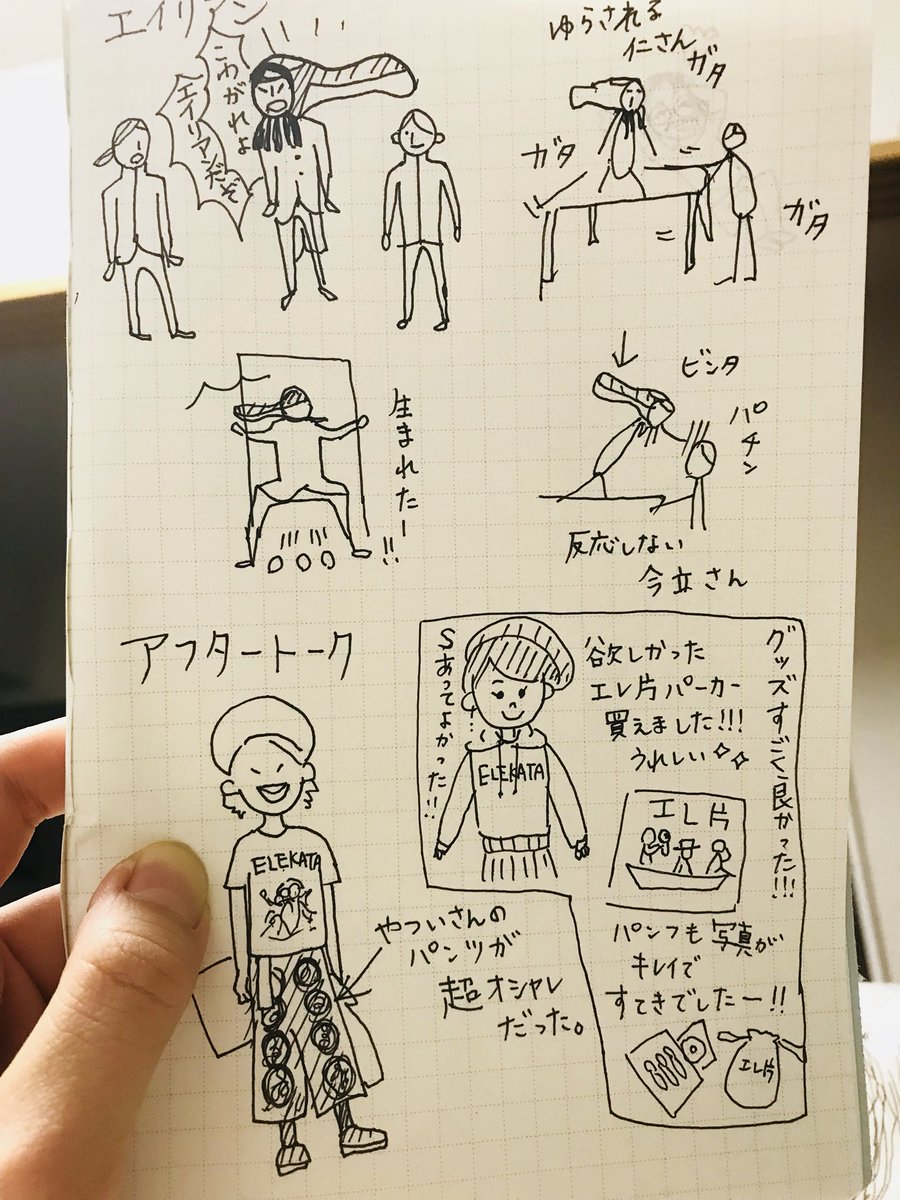 エイリアン
こわがれよ
エイリアンだぞ
ゆらされる
仁さん
ガタ
ガタ
ガタ
生まれたー!!
ビンタ
パチン
反応しない
今立さん
アフタートーク
ELEKATA
やついさんの
パンツが
超オシャレ
だった。
グッズすごく良かった!!!
欲しかった
エレ片パーカー
買えました!!!
うれしい
Sあってよかった!!
ELEKATA
エレ片
パンフも写真が
キレイで
すてきでしたー!!
エレ片